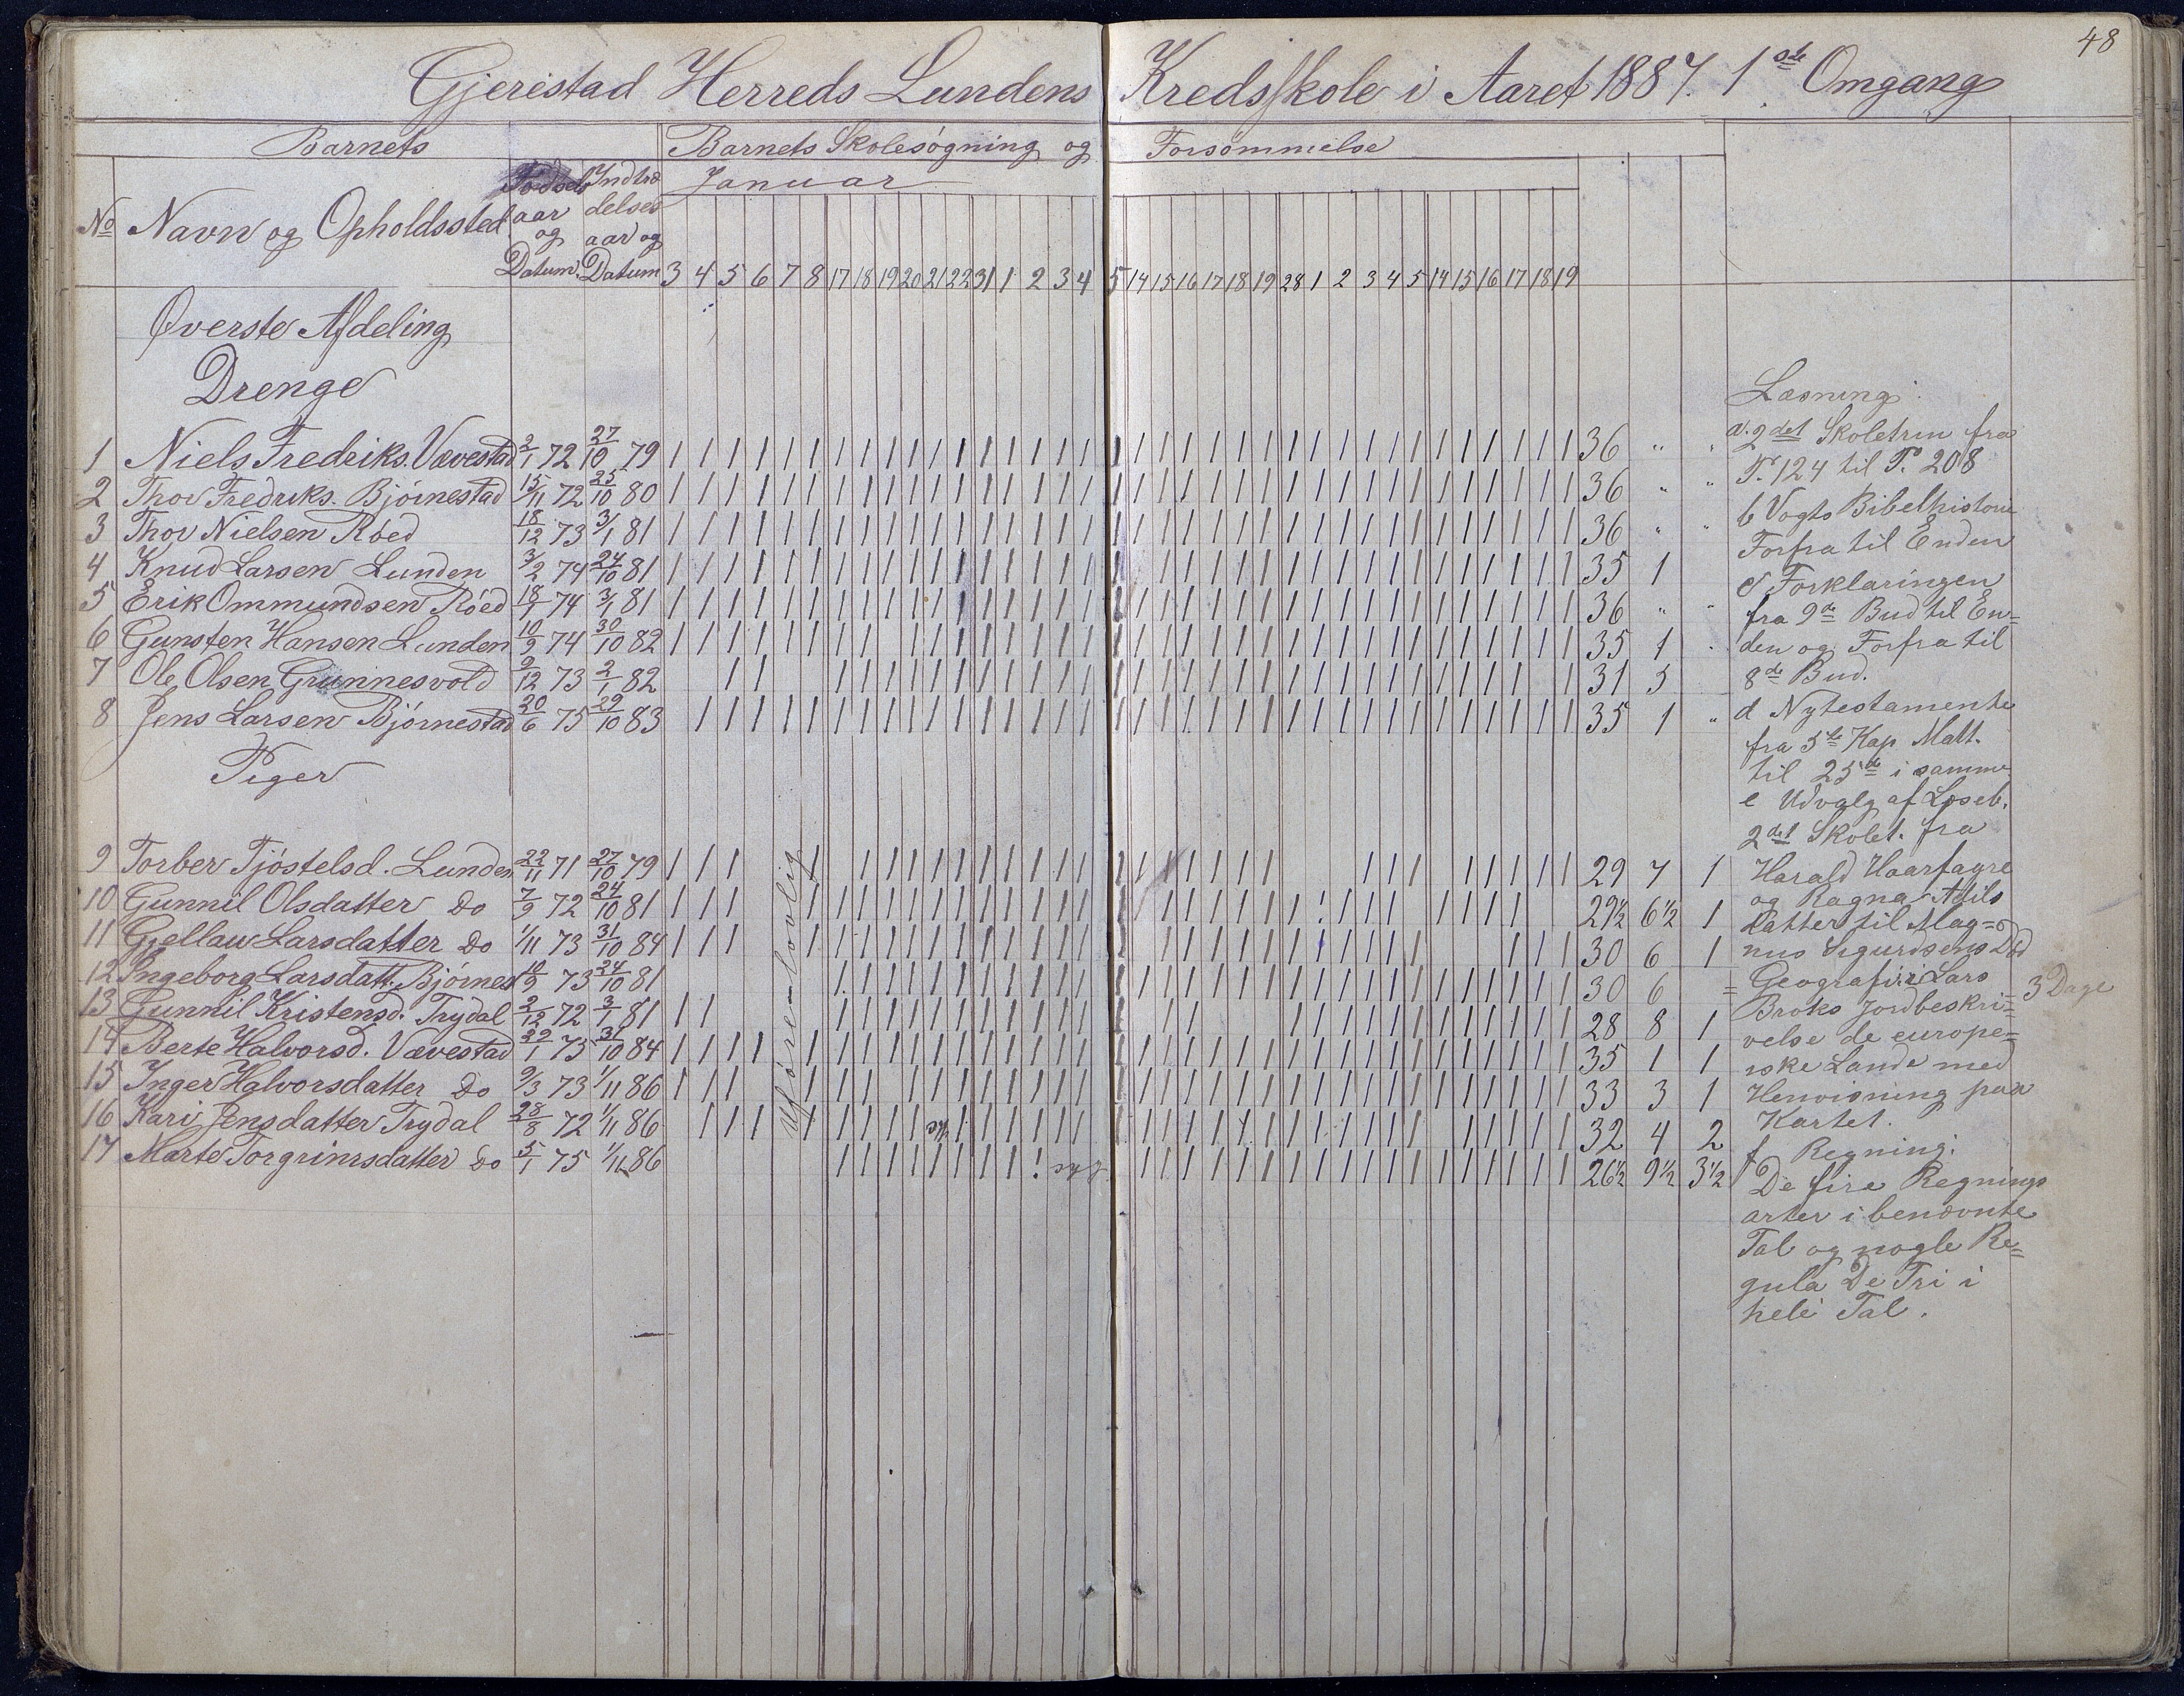 48
Gjerestad Herreds Lundens Kredsskole i Aaret 1887. 1ste Omgang
Barnets Barnets Skolesøgning og Forsømmelse
No Navn og Opholdssted Fødsels aar og Datum. Indtræ delses aar og Datum
Januar
3 4 5 6 7 8 17 18 19 20 21 22 31 1 2 3 4 5 14 15 16 17 18 19 28 1 2 3 4 5 14 15 16 17 18 19
Øverste Afdeling
Drenge
1 Niels Fredriks. Vævestad 2/1 72 27/10 79 36 " "
2 Thov Fredriks. Bjørnestad 15/11 72 25/10 80 36 " "
3 Thov Nielsen Røed 18/12 73 3/1 81 36 " "
4 Knud Larsen Lunden 3/2 74 24/10 81 35 1
5 Erik Ommundsen Røed 18/1 74 3/1 81 36 " "
6 Gunsten Hansen Lunden 10/9 74 30/10 82 35 1 "
7 Ole Olsen Grunnesvold 9/12 73 2/1 82 31 5
8 Jens Larsen Bjørnestad 20/6 75 29/10 83 35 1 "
Piger
9 Torber Tjøstelsd. Lunden 22/11 71 27/10 79 29 7 1
10 Gunnil Olsdatter Do 7/9 72 24/10 81 29½ 6½ 1
11 Gjellau Larsdatter Do 1/11 73 31/10 84 30 6 1
12 Ingeborg Larsdatt. Bjørnes 10/9 73 24/10 81 30 6 =
13 Gunnil Kristensd. Trydal 2/12 72 3/1 81 28 8 1
14 Berte Halvorsd. Vævestad 29/1 75 31/10 84 35 1 1
15 Inger Halvorsdatter Do 9/3 73 1/11 86 33 3 1
16 Kari Jensdatter Trydal 28/8 72 1/11 86 syg 32 4 2
17 Marte Torgrimsdatter Do 5/1 75 1/11 86 syg 26½ 9½ 3½
Uføremlovlig
Læsning:
a. 2det Skoletrin fra
P. 124 til P. 208
b Vogts Bibelhistorie
Forfra til Enden
c Forklaringen
fra 9de Bud til En=
den og Forfra til
8de Bud.
d Nytestamente
fra 5te Kap Matt.
til 25de i samme
e Udvalg af Læseb.
2det Skolet. fra
Harald Haarfagre
og Ragna Adils
datter til Mag=
nus Sigurdsens Død
Geografi: Lars
Broks Jordbeskri=
3 Dage
velse de europe=
iske Lande med
Henvisning paa
Kartet.
f Regning:
De fire Regnings
arter i benævnte
Tal og nogle Re=
gula De Tri i
hele Tal.